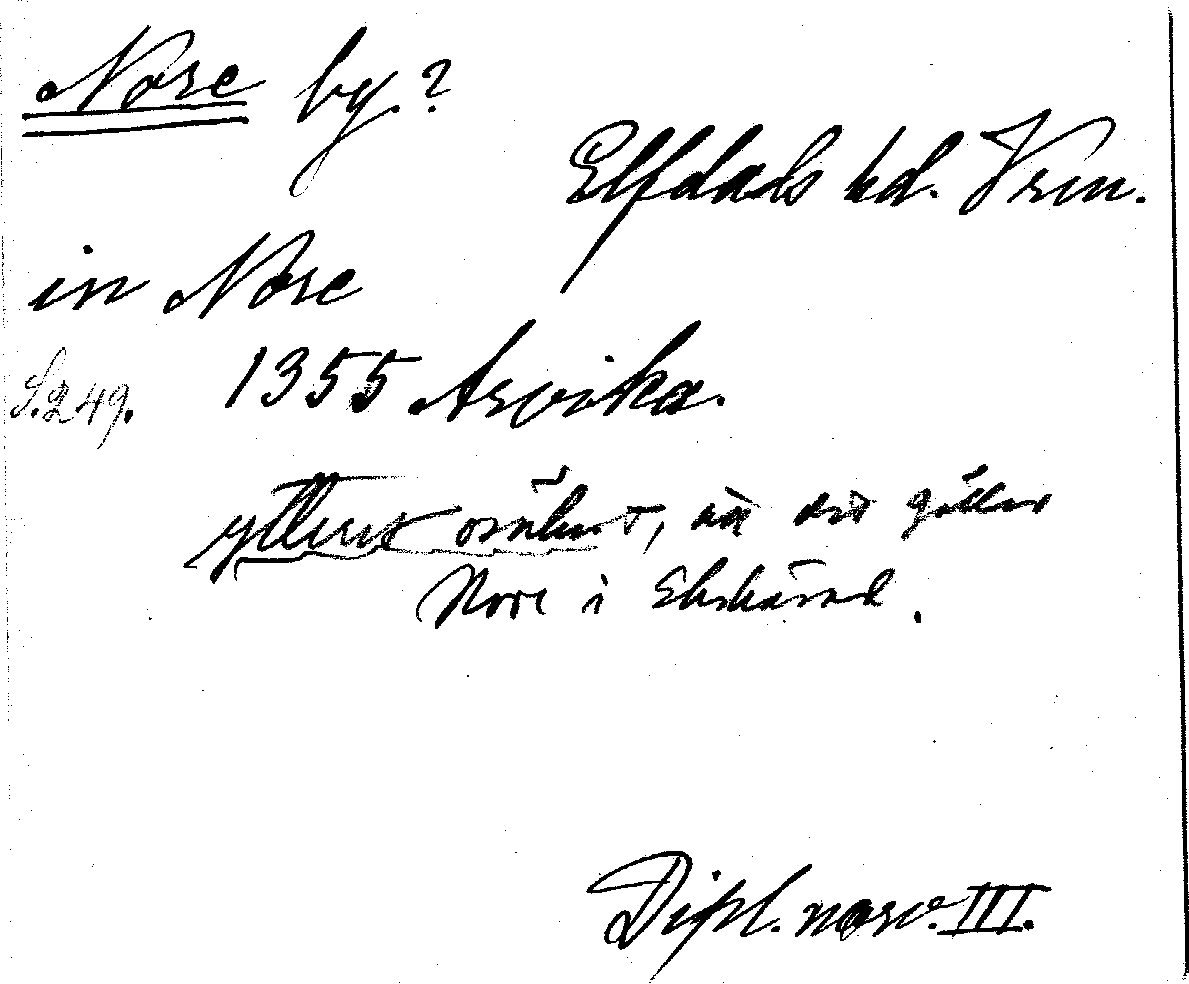 Nore by.?
Elfdals hd. Vrm.
in Nore
S. 249. 1355 Arvika.
ytterst osäkert, om det gäller
Nore i Ekshärad.
Dipl. norv. III.